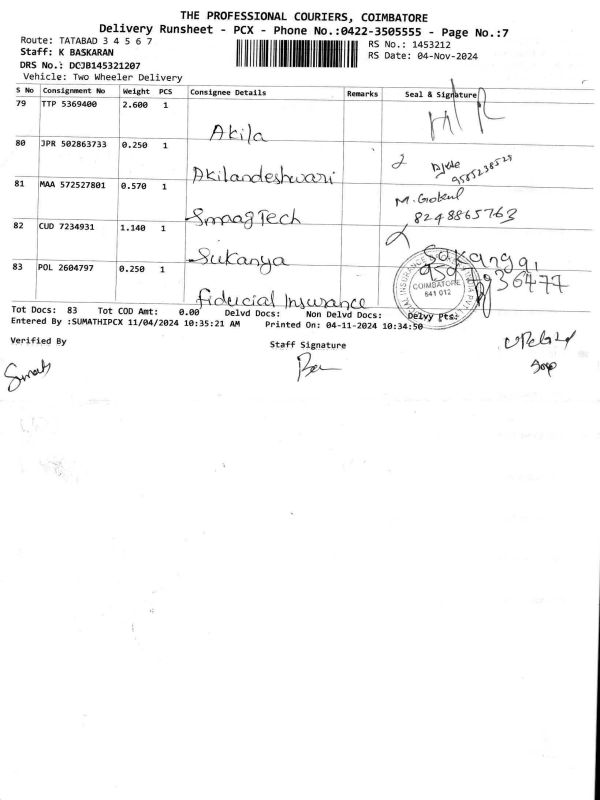 THE PROFESSIONAL COURIERS, COIMBATORE
Delivery Runsheet - PCX - Phone No.:0422-3505555 - Page No.:7
Route: TATABAD 3 4 5 6 7
RS No.: 1453212
Staff: K BASKARAN
RS Date: 04-Nov-2024
DRS No.: DCJB145321207
Vehicle: Two Wheeler Delivery
S No Consignment No Weight PCS Consignee Details Remarks Seal & Signature
79 TTP 5369400 2.600 1
Akila
80 JPR 502863733 0.250 1
Akilandeshwari
9585238529
81 MAA 572527801 0.570 1
SmaagTech
M. Gokul
8248865763
82 CUD 7234931 1.140 1
Sukanya
83 POL 2604797 0.250 1
Fiducial Insurance
COIMBATORE
641 012
Tot Docs: 83 Tot COD Amt: 0.00 Delvd Docs: Non Delvd Docs: Delvy Pts:
Entered By :SUMATHIPCX 11/04/2024 10:35:21 AM Printed On: 04-11-2024 10:34:50
Verified By
Staff Signature